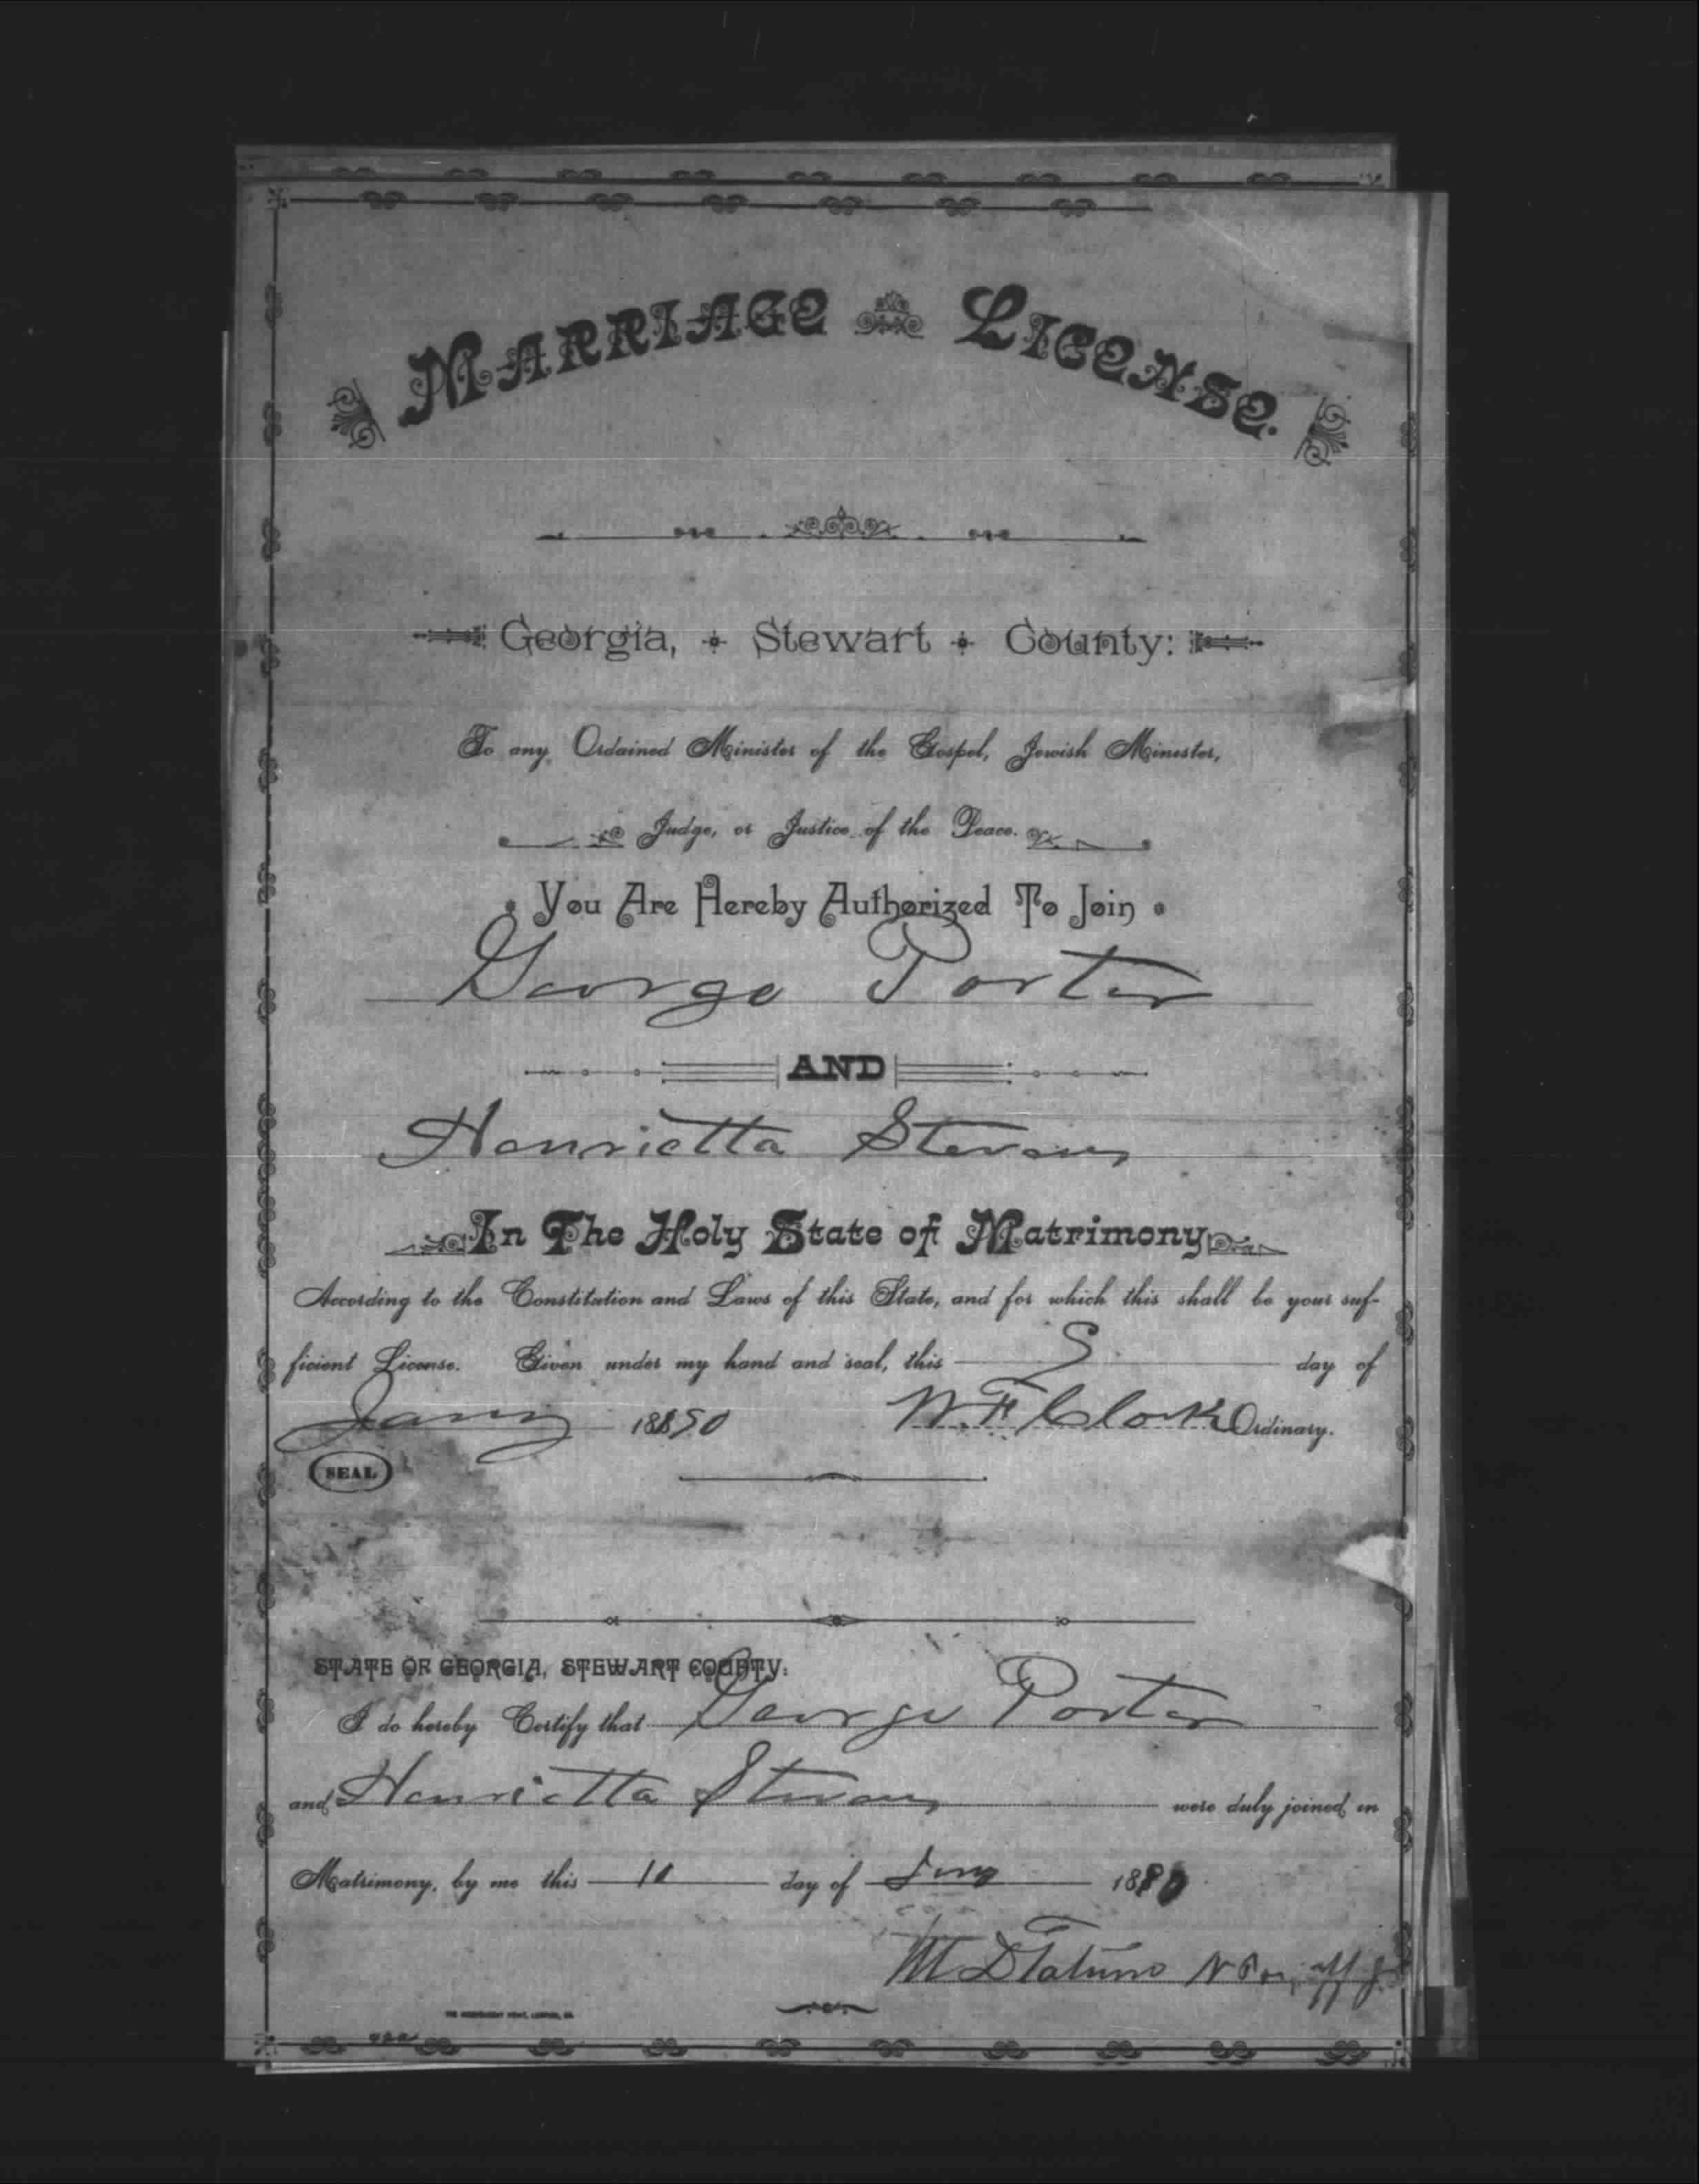 MARRIAGE LICENSE.
Georgia, Stewart County:
To any Ordained Minister of the Gospel, Jewish Minister,
Judge, or Justice of the Peace.
You Are Hereby Authorized To Join
George Porter
AND
Henrietta Stevens
In The Holy State of Matrimony
According to the Constitution and Laws of this State, and for which this shall be your suf-
ficient License. Given under my hand and seal, this day of
Jany 1890 W. F. Clark Ordinary.
SEAL
STATE OF GEORGIA, STEWART COUNTY:
I do hereby Certify that George Porter
and Henrietta Stevens were duly joined in
Matrimony, by me this 10 day of Jany 1890
M D Tatum N P